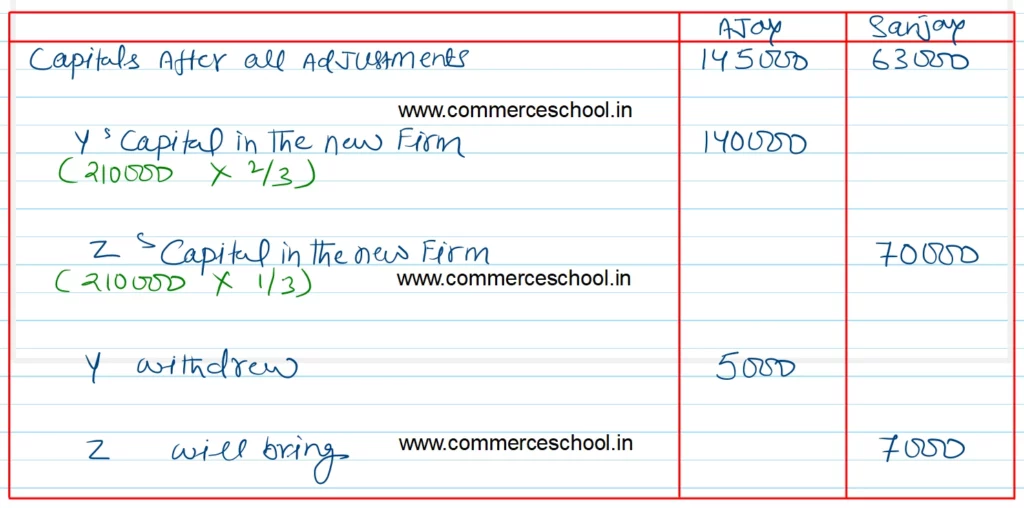 AJay Sanjay
Capitals After all AdJustments 145000 63000
www.commerceschool.in
Y's Capital in the new Firm 140000
(210000 X 2/3)
Z's Capital in the new Firm 70000
(210000 X 1/3) www.commerceschool.in
Y withdrew 5000
Z will bring www.commerceschool.in 7000